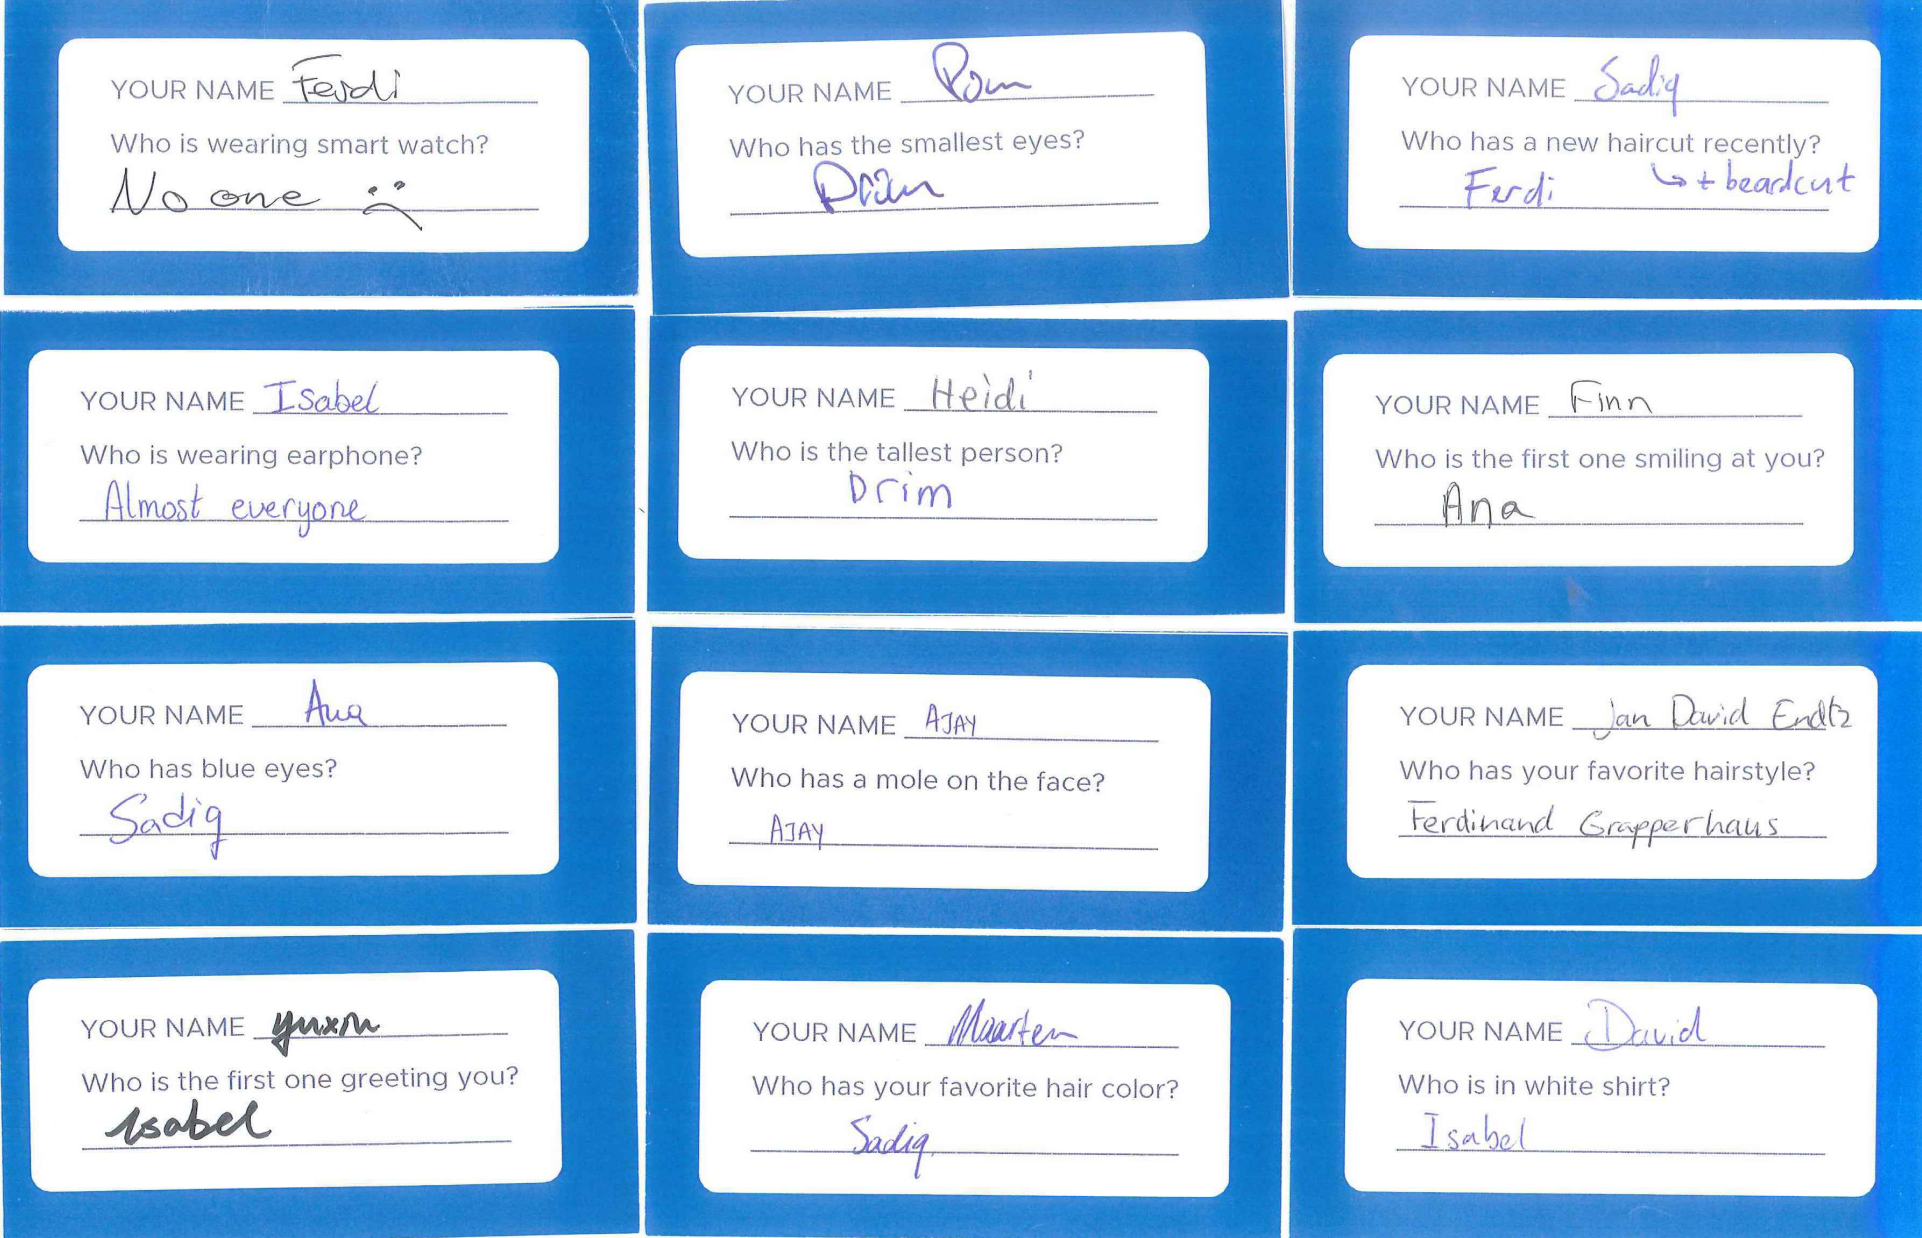 YOUR NAME Ferdi
Who is wearing smart watch?
No one :(
YOUR NAME
Who has the smallest eyes?
YOUR NAME Sadiq
Who has a new haircut recently?
Ferdi ↳ + beardcut
YOUR NAME Isabel
Who is wearing earphone?
Almost everyone
YOUR NAME Heidi
Who is the tallest person?
Drim
YOUR NAME Finn
Who is the first one smiling at you?
Ana
YOUR NAME Ana
Who has blue eyes?
Sadiq
YOUR NAME AJAY
Who has a mole on the face?
AJAY
YOUR NAME Jan David Endtz
Who has your favorite hairstyle?
Ferdinand Grapperhaus
YOUR NAME Yuxin
Who is the first one greeting you?
Isabel
YOUR NAME Maarten
Who has your favorite hair color?
Sadiq
YOUR NAME David
Who is in white shirt?
Isabel